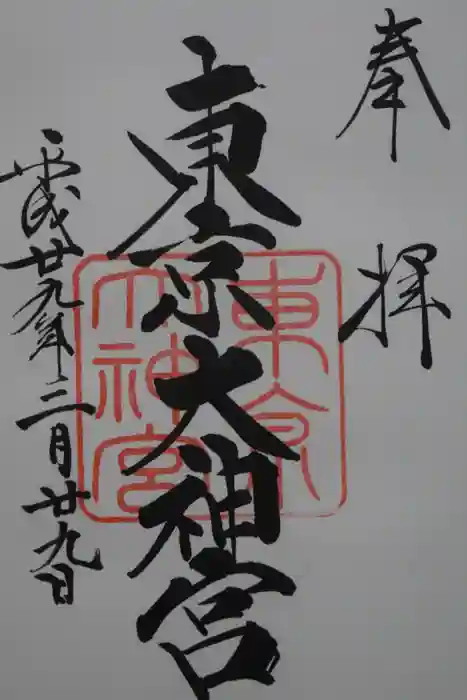 奉拝
東京大神宮
東京
大神宮
平成廿九年三月廿九日